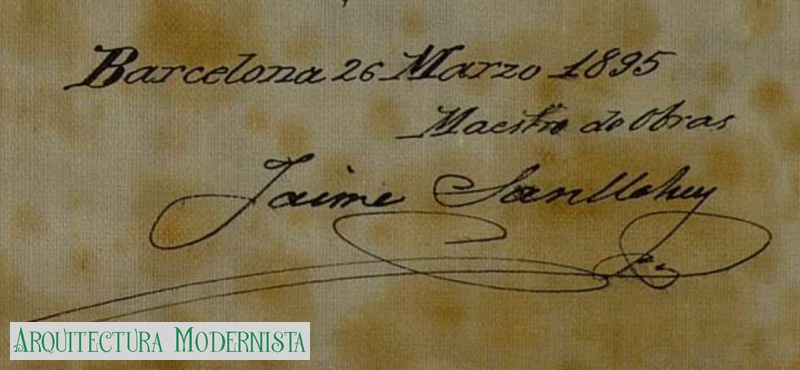 Barcelona 26 Marzo 1895
Maestro de Obras
Jaime Sanllehy
ARQUITECTURA MODERNISTA